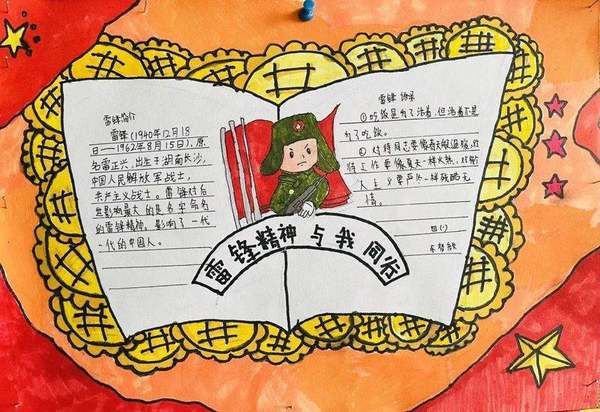 雷锋简介
雷锋(1940年12月18
日——1962年8月15日),原
名雷正兴,出生于湖南长沙,
中国人民解放军战士,
共产主义战士。雷锋对后
世影响最大的是
的雷锋精神,影响了一代
一代的中国人。
雷锋
①吃饭是为了活着,但活着不是
为了吃饭。
②对待同志要像春天般温暖,对
待工作要像夏天一样火热,对
人主义要 一样残酷无
情。
四(1)
雷锋精神与我同行